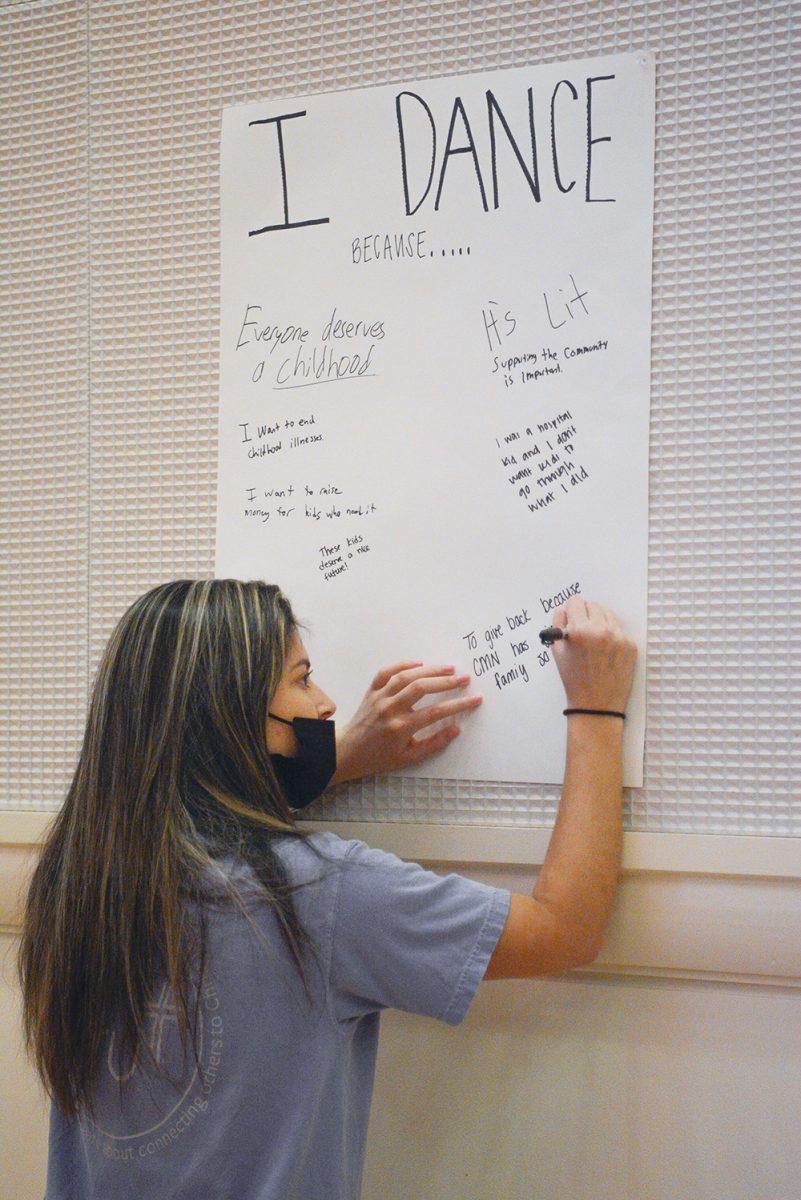 I DANCE
BECAUSE.....
Everyone deserves
a childhood
I want to end
childhood illnesses.
I want to raise
money for kids who need it
These kids
deserve a nice
future!
It's Lit
Supporting the Community
is important.
I was a hospital
kid and I don't
want kids to
go through
what I did
To give back because
CMN has
family so
out connecting others to